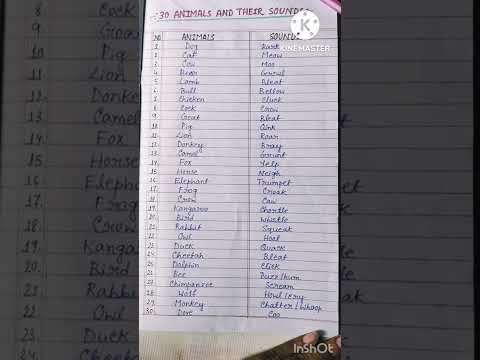 30 ANIMALS AND THEIR SOUNDS
KINEMASTER
NO ANIMALS SOUNDS
1 Dog Bark
2 Cat Meow
3 Cow Moo
4 Bear Growl
5 Lamb Bleat
6 Bull Bellow
7 Chicken Cluck
8 Cock Crow
9 Goat Bleat
10 Pig Oink
11 Lion Roar
12 Donkey Bray
13 Camel Grunt
14 Fox Yelp
15 Horse Neigh
16 Elephant Trumpet
17 Frog Croak
18 Crow Caw
19 Kangaroo Chortle
20 Bird Whistle
21 Rabbit Squeak
22 Owl Hoot
23 Duck Quack
24 Cheetah Bleat
25 Dolphin Click
26 Bee Buzz/hum
27 Chimpanzee Scream
28 Wolf Howl/cry
29 Monkey Chatter/Whoop
30. Dove Coo
InShOt
8 Cock
9 Goat
10 Pig
11 Lion
12 Donkey
13 Camel
14 Fox
15 Horse
16 Elephant
17. Frog
18 Crow
19. Kangaroo
20. Bird
21. Rabbit
22. Owl
23. Duck
24. Cheetah